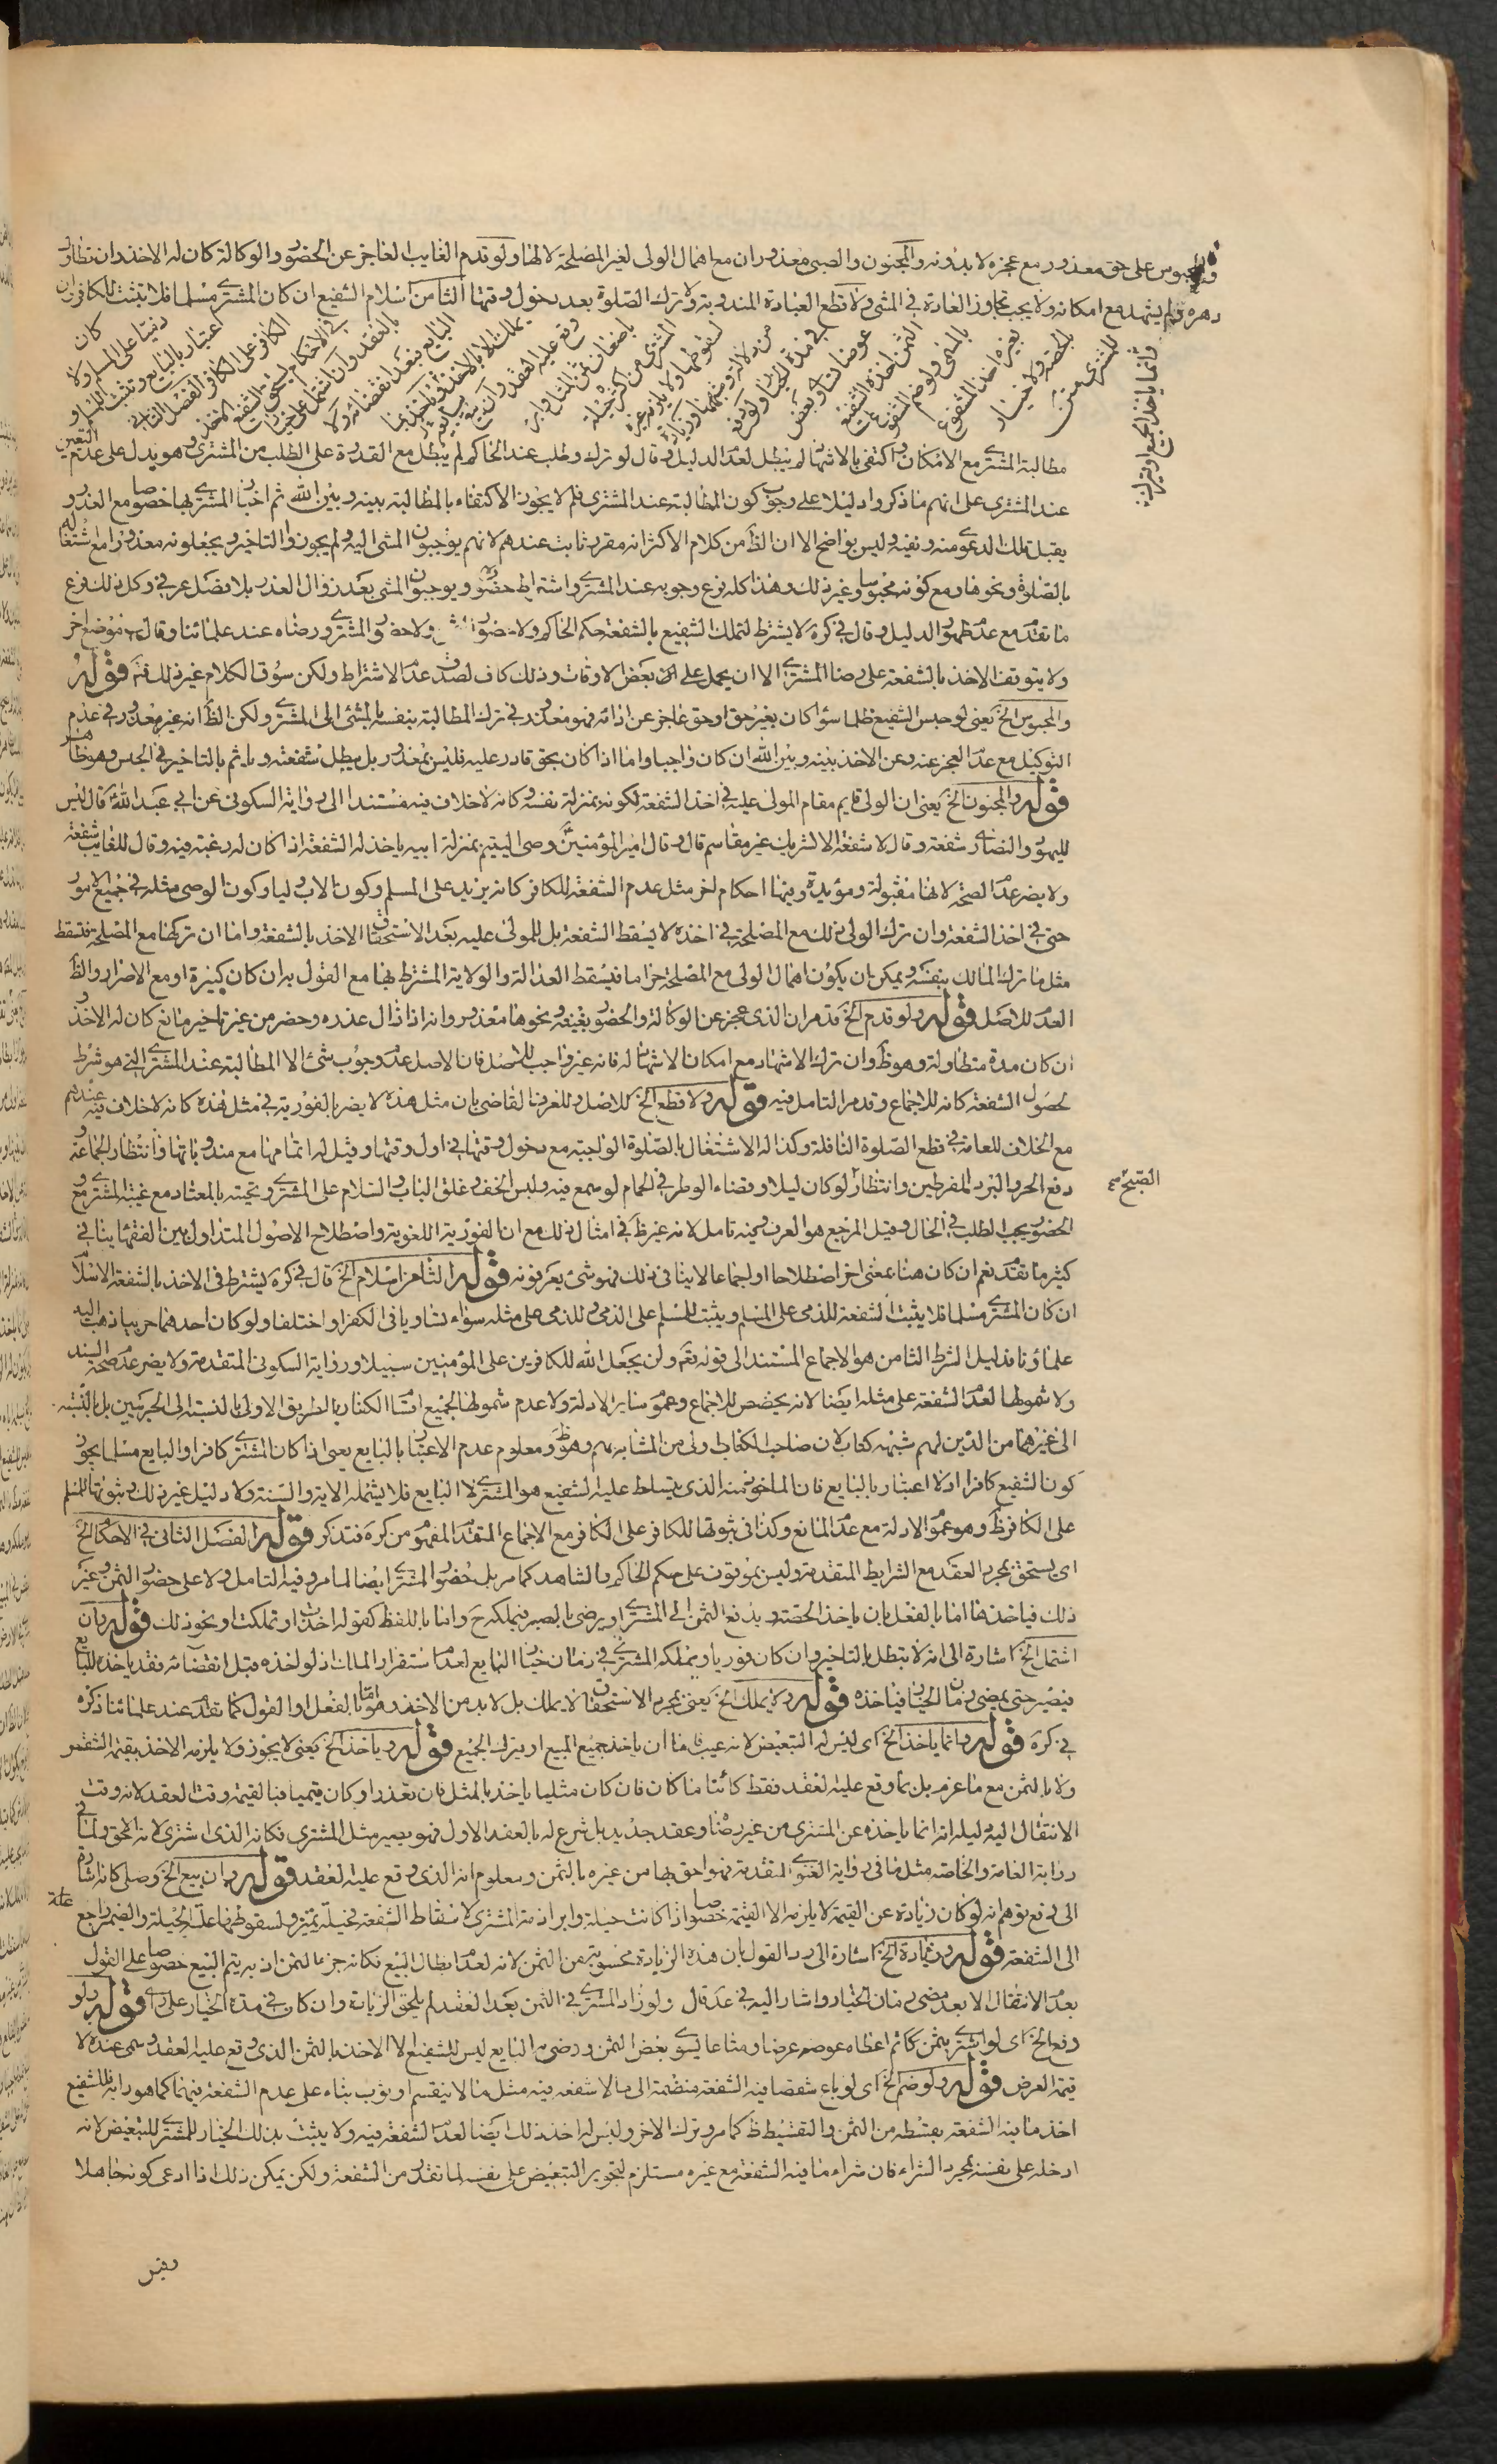 والمحبوس على حق معذور مع عجزه لا بدونه والمجنون والصبي معذوران مع اهمال الولي لغير المصلحة لا لها ولو قدم الغايب العاجز عن الحضور والوكالة كان له الاخذ وان تطاول
دهره ولم يشهد مع امكانه ولا يجب تجاوز العادة في المشي ولا قطع العبادة المندوبة ولا ترك الصلوة بعد دخول وقتها الثامن اسلام الشفيع ان كان المشتري مسلما فلا يثبت للكافر وان
كان
ذميا على المسلم ولا
اعتبار بالبايع وتثبت للمسلم و
الكافر على الكافر الفصل الثاني
في الاحكام يستحق الشفيع الاخذ
بالعقد وان اشتمل على خيار
البايع فبعد انقضائه ولا
يملك الا بالاخذ وياخذ بما
وقع عليه العقد وان بيع
باضعاف ثمن المثل وابرء
المشتري من اكثره حيلة
لسقوطها ولا يلزمه غيره
من دلالة و شبهها و زيادة
في مدة الخيار ولو دفع
عوضا يساوي بعض
الثمن اخذه الشفيع
بالمسمى ولو ضم المشفوع
بغيره اخذ المشفوع
بالحصة ولا خيار
للمشتري
وانما ياخذ الجميع او يترك
مطالبة المشتري مع الامكان واكتفى بالاشهاد لم تبطل لعدم الدليل وقال لو ترك وطلب عند الحاكم لم يبطل مع القدرة على الطلب من المشتري وهو يدل على عدم التعيين
عند المشتري على انهم ما ذكروا دليلا على وجوب كون المطالبة عند المشتري فلم لا يجوز الاكتفاء بالمطالبة بينه وبين الله ثم اخبار المشتري بها خصوصا مع العذر و
يقبل تلك الدعوى منه ونفيه وليس بواضح الا ان الظ من كلام الاكثر انه مقرر ثابت عندهم لانهم يوجبون المشي اليه ولم يجوزوا التاخير ويجعلونه معذورا مع اشتغاله
بالصلوة ونحوها ومع كونه محبوسا وغير ذلك وهذا كله فرع وجوبه عند المشتري واشتراط حضوره ويوجبون المشي بعد زوال العذر بلا فصل عرفي وكل ذلك فرع
ما تقدم مع عدم ظهور الدليل وقال في كرة لا يشترط لتملك الشفيع بالشفعة حكم الحاكم ولا حضور الثمن ولا حضور المشتري ورضاه عند علمائنا وقال في موضع اخر
ولا يتوقف الاخذ بالشفعة على رضا المشتري الا ان يحمل على ان بعض الاوقات وذلك كاف لصدق عدم الاشتراط ولكن سوق الكلام غير ذلك فتم قوله
والمحبوس الخ يعني لو حبس الشفيع ظلما سواء كان بغير حق او حق عاجز عن ادائه فهو معذور في ترك المطالبة بنفسه بالمشي الى المشتري ولكن الظ انه غير معذور في عدم
التوكيل مع عدم العجز عنه وعن الاخذ بينه وبين الله ان كان واجبا واما اذا كان بحق قادر عليه فليس بمعذور بل يبطل شفعته وياثم بالتاخير في الحبس وهو ظاهر
قوله والمجنون الخ يعني ان الولي قايم مقام المولى عليه في اخذ الشفعة لكونه بمنزلة نفسه وكانه لا خلاف فيه مستندا الى رواية السكوني عن ابي عبد الله قال ليس
لليهود والنصارى شفعة وقال لا شفعة الا لشريك غير مقاسم قال وقال امير المؤمنين وصي اليتيم بمنزلة ابيه ياخذ له الشفعة اذا كان له رغبة فيه وقال للغايب شفعة
ولا يضر عدم الصحة لانها مقبولة ومؤيدة وفيها احكام اخر مثل عدم الشفعة للكافر كانه يريد على المسلم وكون الاب وليا وكون الوصي مثله في جميع الامور
حتى في اخذ الشفعة وان ترك الولي ذلك مع المصلحة في اخذه لا يسقط الشفعة بل للمولى عليه بعد الاستحقاق الاخذ بالشفعة واما ان تركها مع المصلحة فتسقط
مثل ما ترك المالك بنفسه ويمكن ان يكون اهمال الولي مع المصلحة حراما فيسقط العدالة والولاية المشترط بها مع القول به ان كان كبيرة او مع الاصرار والظ
العدم للاصل قوله ولو قدم الخ قد مر ان الذي عجز عن الوكالة والحضور بغيبة ونحوها معذور وانه اذا زال عذره وحضر من غير تاخير مانع كان له الاخذ و
ان كان مدة متطاولة وهو ظ وان ترك الاشهاد مع امكان الاشهاد له فانه غير واجب للاصل فان الاصل عدم وجوب شئ الا المطالبة عند المشتري التي هو شرط
لحصول الشفعة كانه للاجماع وقد مر التامل فيه قوله ولا قطع الخ للاصل وللعرف القاضي بان مثل هذه لا يضر بالفورية في مثل هذه كانه لا خلاف فيه عندهم
مع الخلاف للعامة في قطع الصلوة النافلة وكذا له الاشتغال بالصلوة الواجبة مع دخول وقتها في اول وقتها وقيل له اتمامها مع مندوباتها وانتظار الجماعة و
دفع الحر والبرد المفرطين وانتظار لو كان ليلا وقضاء الوطر في الحمام لو سمع فيه ولبس الخف وغلق الباب والسلام على المشتري وتحيته بالمعتاد مع غيبة المشتري ومع
الصبح صح
الحضور يجب الطلب في الحال وقيل المرجع هو العرف وفيه تامل لانه غير ظ في امثال ذلك مع ان الفورية اللغوية واصطلاح الاصول المتداول بين الفقهاء ينافي
كثير ما تقدم نعم ان كان هنا بمعنى اخر اصطلاحا او اجماعا لا ينافي ذلك فهو شئ يعرفونه قوله الثامن اسلام الخ قال في كرة يشترط في الاخذ بالشفعة الاسلام
ان كان المشتري مسلما فلا يثبت الشفعة للذمي على المسلم ويثبت للمسلم على الذمي وللذمي على مثله سواء تساويا في الكفر او اختلفا ولو كان احدهما حربيا ذهب اليه
علماؤنا فدليل الشرط الثامن هو الاجماع المستند الى قوله تعم ولن يجعل الله للكافرين على المؤمنين سبيلا ورواية السكوني المتقدمة ولا يضر عدم صحة السند
ولا شمولها لعدم الشفعة على مثله ايضا لانه يخصص للاجماع وعموم ساير الادلة ولا عدم شمولها لجميع اقسام الكفار بالطريق الاولى بالنسبة الى الحربيين بل بالنسبة
الى غيرهما من الذين لهم شبهة كتاب لان صاحب الكتاب اولى من المشابه بهم وهو ظ ومعلوم عدم الاعتبار بالبايع يعني اذا كان المشتري كافرا والبايع مسلما يجوز
كون الشفيع كافرا اذ لا اعتبار بالبايع فان الماخوذ منه الذي يتسلط عليه الشفيع هو المشتري لا البايع فلا يشمله الاية والسنة ولا دليل غير ذلك وثبوتها للمسلم
على الكافر ظ وهو عموم الادلة مع عدم المانع وكذا في ثبوتها للكافر على الكافر مع الاجماع المتقدم المفهوم من كرة فتذكر قوله الفصل الثاني في الاحكام الخ
اي يستحق بمجرد العقد مع الشرايط المتقدمة وليس بموقوف على حكم الحاكم والشاهد كما مر بل حضور المشتري ايضا لما مر وفيه التامل ولا على حضور الثمن وغير
ذلك فياخذها اما بالفعل بان ياخذ الحصة ويدفع الثمن الى المشتري او يرضى بالصبر فيملكه ح واما باللفظ كقوله اخذت او تملكت او نحو ذلك قوله وان
اشتمل الخ اشارة الى انه لا تبطل بالتاخير وان كان فوريا ويملكه المشتري في زمان خيار البايع لعدم استقرار الملك اذ لو اخذه قبل انقضائه فقد ياخذه البايع
فيصبر حتى يمضي زمان الخيار فياخذه قوله ولا يملك الخ يعني بمجرد الاستحقاق لا يملك بل لا بد من الاخذ وهو اما بالفعل او القول كما تقدم عند علمائنا ذكره
في كرة قوله وانما ياخذ الخ اي ليس له التبعيض لانه عيب فاما ان ياخذ جميع المبيع او يترك الجميع قوله وياخذ الخ يعني لا يجوز ولا يلزمه الاخذ بقيمة الشقص
ولا بالثمن مع ما غرم بل بما وقع عليه العقد فقط كائنا ما كان فان كان مثليا ياخذ بالمثل فان تعذر او كان قيميا فبالقيمة وقت العقد لانه وقت
الانتقال اليه دليله انه انما ياخذه عن المشتري من غير رضا وعقد جديد بل شرع له بالعقد الاول فهو يصير مثل المشتري فكانه الذي اشترى لانه الاحق ولما في
رواية العامة والخاصة مثل ما في رواية الغنوي المتقدمة فهو احق بها من غيره بالثمن ومعلوم انه الذي وقع عليه العقد قوله وان بيع الخ وصلي كانه اشارة
الى دفع توهم انه لو كان زيادة عن القيمة لا يلزمه الا القيمة خصوصا اذا كانت حيلة وابراء ذمة المشتري لاسقاط الشفعة فحيلة تميز ولسقوطها علة لحيلة والضمير راجع
علة
الى الشفعة قوله وزيادة الخ اشارة الى رد القول بان هذه الزيادة محسوبة من الثمن لانه لعدم ابطال البيع فكانه جزء الثمن اذ به يتم البيع خصوصا على القول
بعدم الانتقال الا بعد مضي زمان الخيار واشار اليه في عد قال ولو زاد المشتري في الثمن بعد العقد لم يلحق الزيادة وان كان في مدة الخيار على راي قوله ولو
دفع الخ اي لو اشترى بثمن كمائة اعطاه عوضه عرضا ومتاعا يسوى بعض الثمن ورضي به البايع ليس للشفيع الا الاخذ بالثمن الذي وقع عليه العقد وسمى عنده لا
قيمة العرض قوله ولو ضم الخ اي لو باع شقصا فيه الشفعة منضمة الى ما لا شفعة فيه مثل ما لا ينقسم او ثوب بناء على عدم الشفعة فيهما كما هو رايه فللشفيع
اخذ ما فيه الشفعة بقسطه من الثمن والتقسيط ظ كما مر وترك الاخر وليس له اخذ ذلك ايضا لعدم الشفعة فيه ولا يثبت بذلك الخيار للمشتري للتبعيض لانه
ادخله على نفسه بمجرد الشراء فان شراء ما فيه الشفعة مع غيره مستلزم لتجويز التبعيض على نفسه لما تقرر من الشفعة ولكن يمكن ذلك اذا ادعى كونه جاهلا